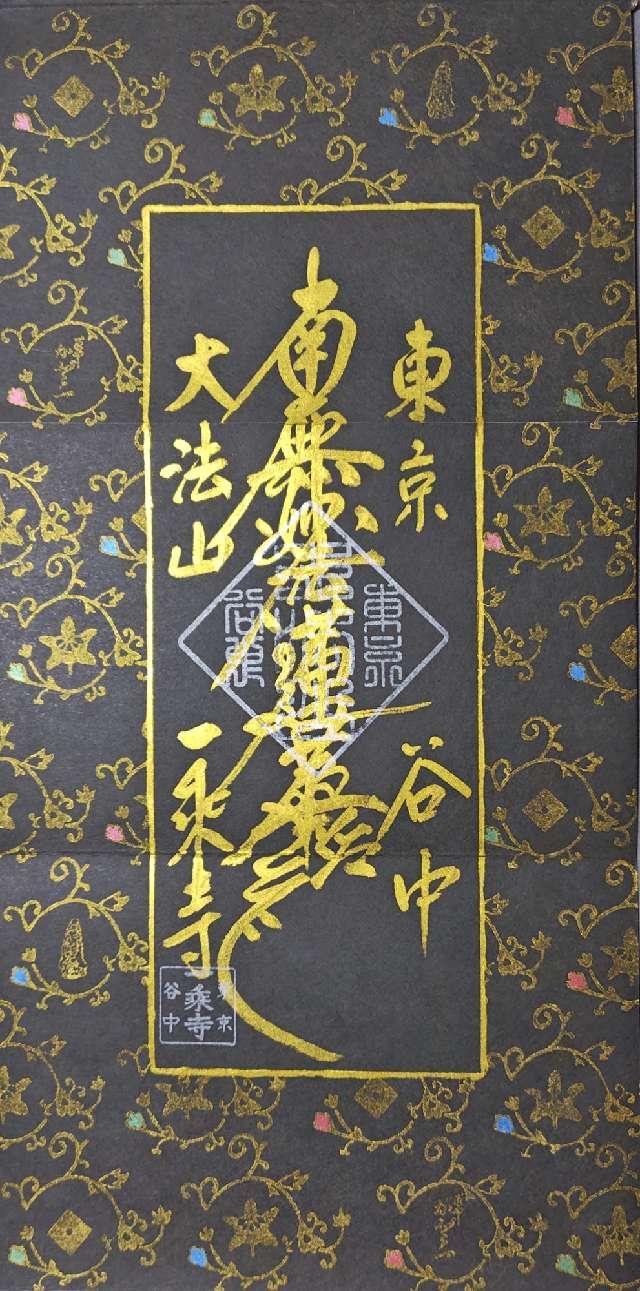 東京 谷中
南無妙法蓮華経
大法山 一乗寺
東京
谷中
一乗寺